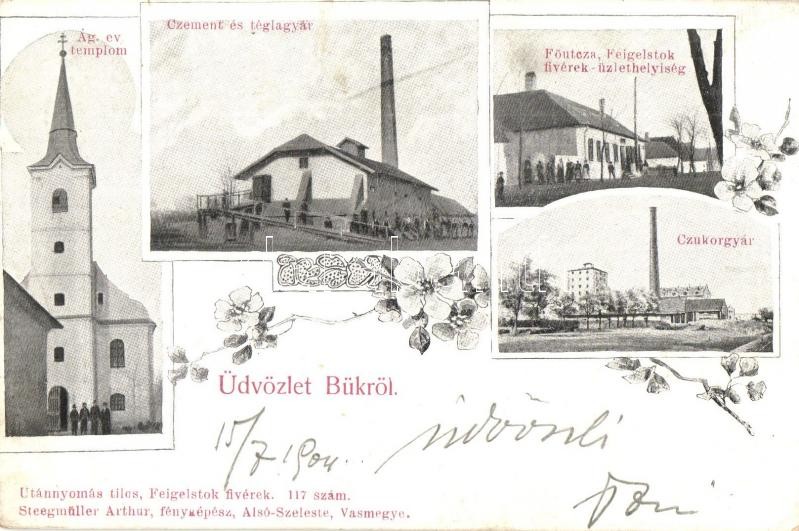 Ág. ev
templom
Czement és téglagyár
Főutcza, Feigelstok
fivérek-üzlethelyiség
Czukorgyár
Üdvözlet Bükröl.
15/7 1904.
üdvözli
Utánnyomás tilos, Feigelstok fivérek. 117 szám.
Steegmüller Arthur, fényképész, Alsó-Szeleste, Vasmegye.